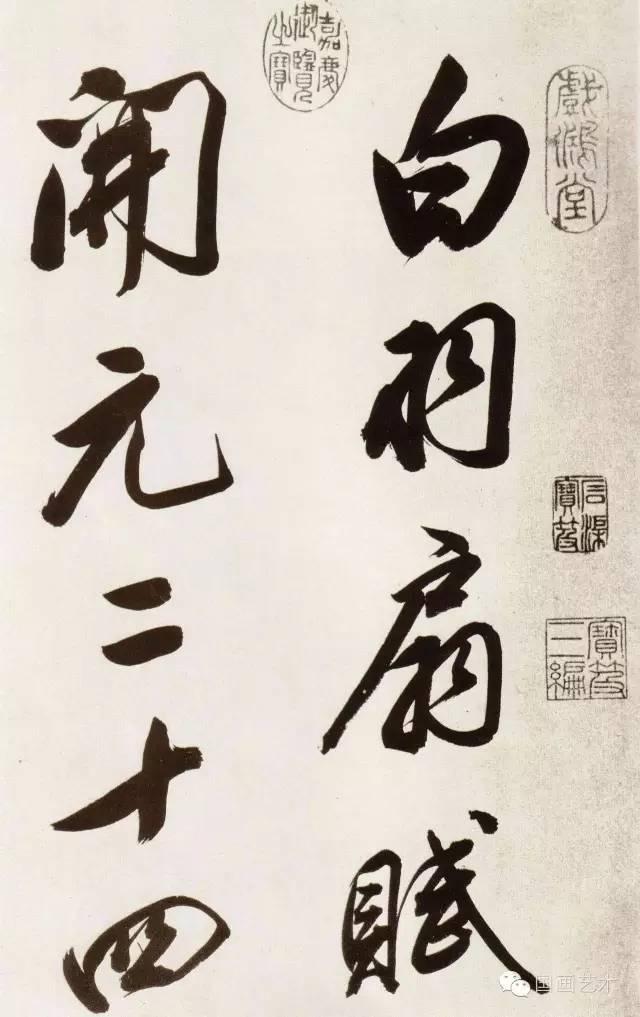 白羽扇賦
開元二十四
嘉慶
御覽
之寶
戲鴻堂
石渠
寶笈
寶笈
三編
国画艺术